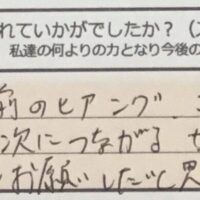 れていかがでしたか？
私達の何よりの力となり今後の
前のヒアング
次につながる
お願いしたいと思